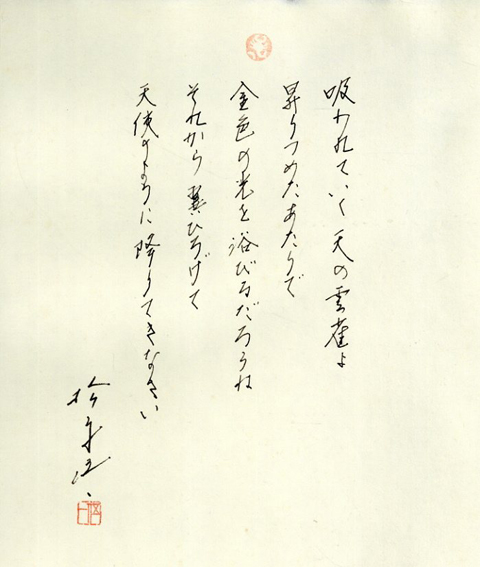 吸われていく 天の雲雀よ
昇りつめたあたりで
金色の光を浴びるだろうね
それから 翼ひろげて
天使のように 降りてきなさい